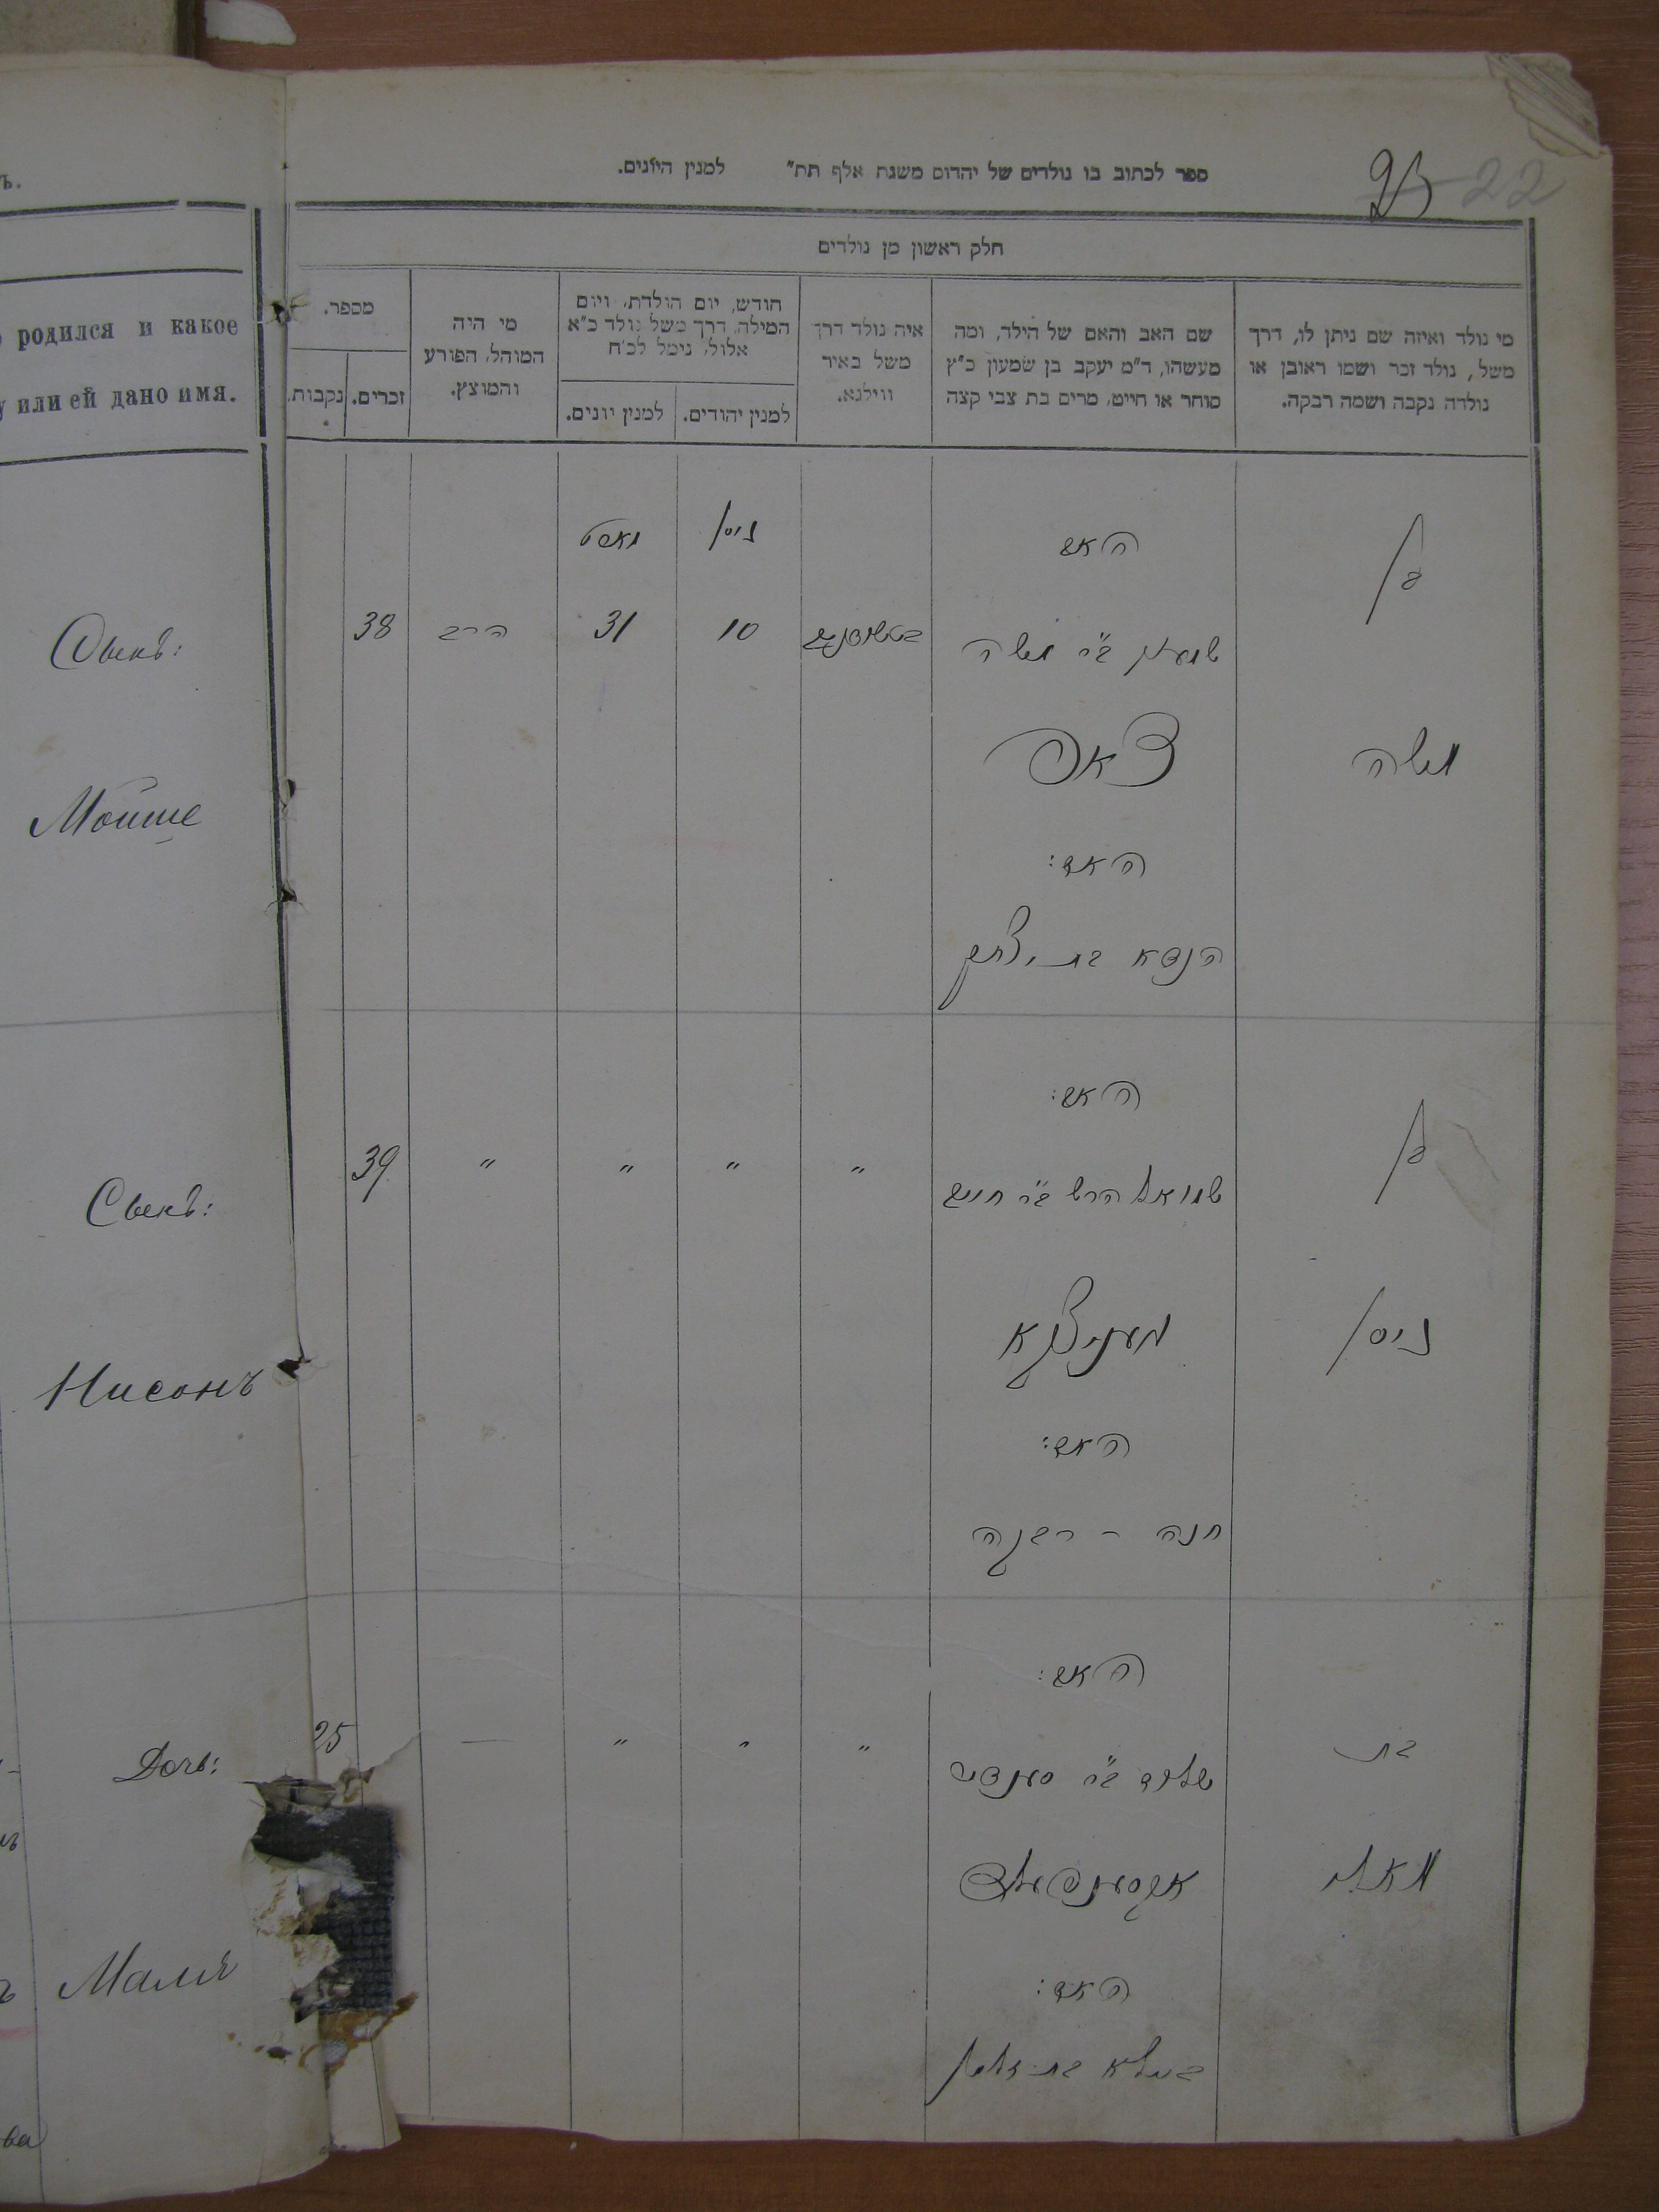 ъ.
родился и какое
у или ей дано имя.
Сынъ:
Мойше
Сынъ:
Нисонъ
Дочь:
Малня
ва
25 22
ספר לכתוב בו נולדים של יהדום משנת אלף תת" למנין היונים.
חלק ראשון מן נולדים
מי נולד ואיזה שם ניתן לו, דרך
משל, נולד זכר ושמו ראובן או
נולדה נקבה ושמה רבקה.
שם האב והאם של הילד, ומה
מעשהו, ד"מ יעקב בן שמעון כ"ץ
סוחר או חייט, מרים בת צבי קצה
איה נולד דרך
משל באיר
ווילנא.
חודש, יום הולדת, ויום
המילה, דרך משל נולד כ"א
אלול, נימל לכ"ח
למנין יהודים.
למנין יונים.
מי היה
המוהל, הפורע
והמוצץ.
מספר.
זכרים.
נקבות.
בן
משה
האב
שמעון ב"ר משה
האם:
הנדא בת יצחק
ניסן
10
מארט
31
הרב
38
בן
ניסן
האב:
שמואל הרש ב"ר חיים
האם:
חנה - רבקה
"
"
"
"
39
בת
מאלי
האב:
האם:
"
"
"
—
25